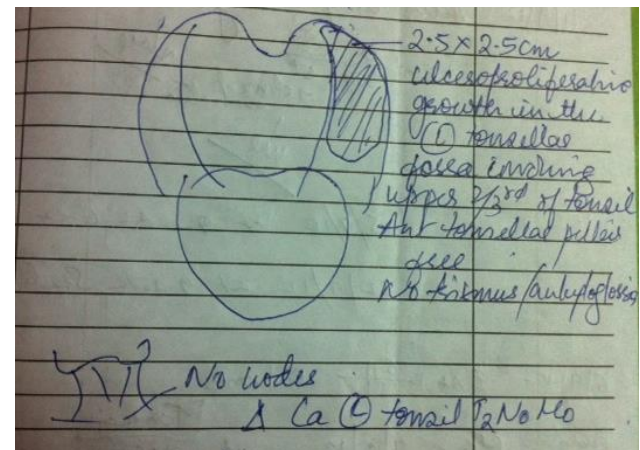 2.5 x 2.5cm
ulceroproliferative
growth in the
Ⓛ tonsillar
fossa involving
upper 2/3rd of tonsil
Ant tonsillar pillar
free
No trismus/ankyloglossia
No nodes
Δ Ca Ⓛ tonsil T₂N₀M₀